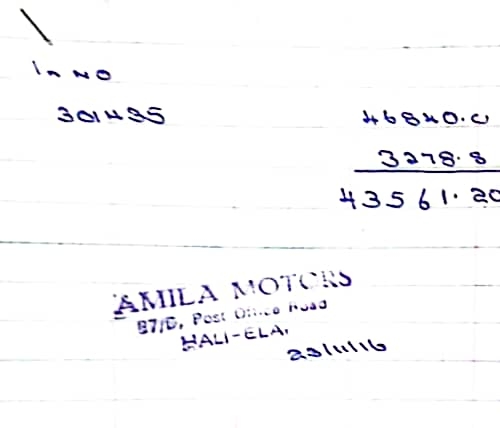 In NO
301435 46840.0
3278.8
43561.20
AMILA MOTORS
87/D, Post Office Road
HALI-ELA.
23/11/16